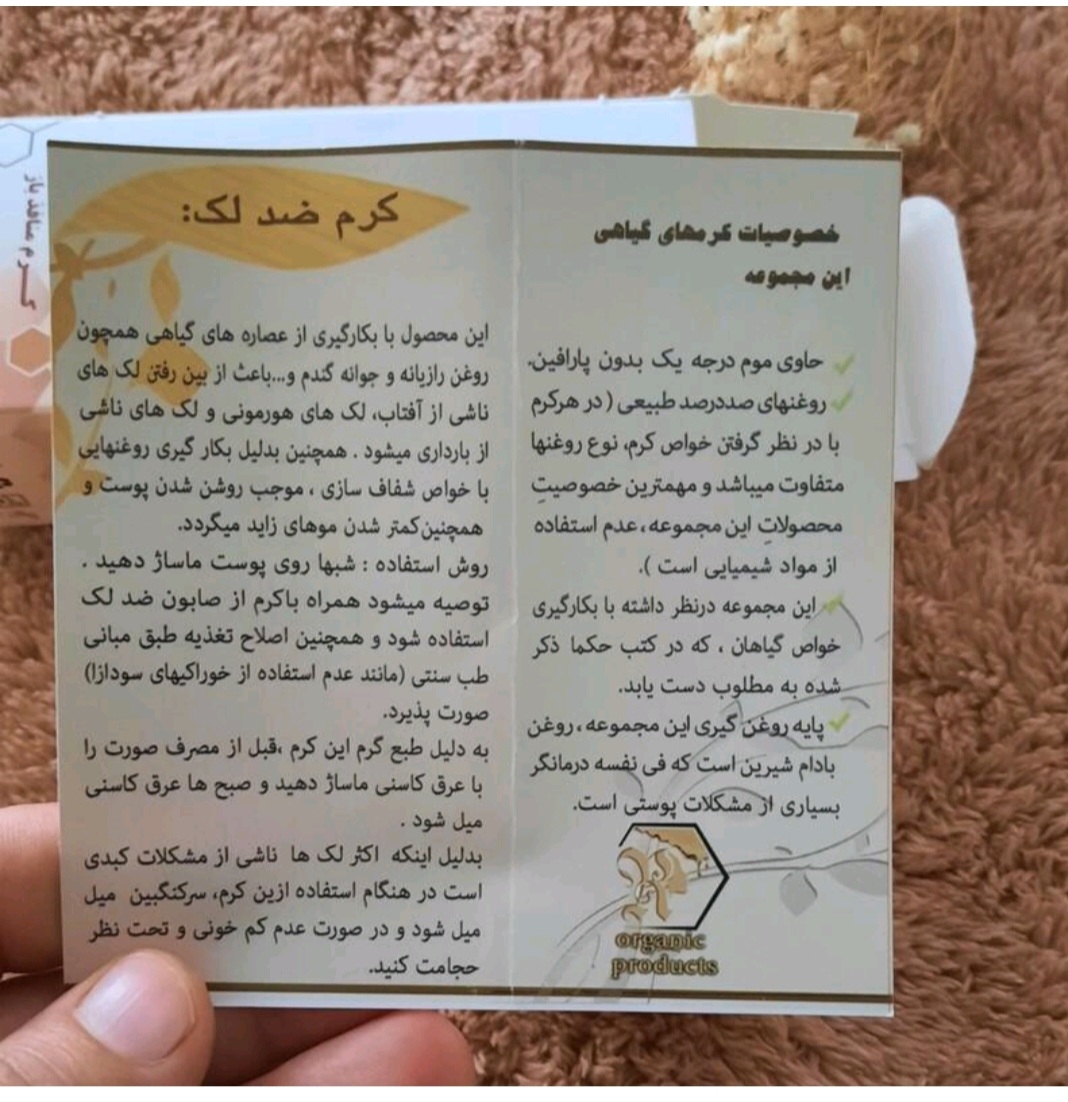 خصوصیات کرمهای گیاهی
این مجموعه
حاوی موم درجه یک بدون پارافین.
روغنهای صددرصد طبیعی ( در هرکرم
با در نظر گرفتن خواص کرم، نوع روغنها
متفاوت میباشد و مهمترین خصوصیتِ
محصولاتِ این مجموعه، عدم استفاده
از مواد شیمیایی است ).
این مجموعه درنظر داشته با بکارگیری
خواص گیاهان ، که در کتب حکما ذکر
شده به مطلوب دست یابد.
پایه روغن گیری این مجموعه، روغن
بادام شیرین است که فی نفسه درمانگر
بسیاری از مشکلات پوستی است.
organic
products
کرم ضد لک:
این محصول با بکارگیری از عصاره های گیاهی همچون
روغن رازیانه و جوانه گندم و...باعث از بین رفتن لک های
ناشی از آفتاب، لک های هورمونی و لک های ناشی
از بارداری میشود . همچنین بدلیل بکار گیری روغنهایی
با خواص شفاف سازی ، موجب روشن شدن پوست و
همچنین کمتر شدن موهای زاید میگردد.
روش استفاده : شبها روی پوست ماساژ دهید .
توصیه میشود همراه باکرم از صابون ضد لک
استفاده شود و همچنین اصلاح تغذیه طبق مبانی
طب سنتی (مانند عدم استفاده از خوراکیهای سودازا)
صورت پذیرد.
به دلیل طبع گرم این کرم ،قبل از مصرف صورت را
با عرق کاسنی ماساژ دهید و صبح ها عرق کاسنی
میل شود .
بدلیل اینکه اکثر لک ها ناشی از مشکلات کبدی
است در هنگام استفاده ازین کرم، سرکنگبین میل
میل شود و در صورت عدم کم خونی و تحت نظر
حجامت کنید.
کرم منافذ باز